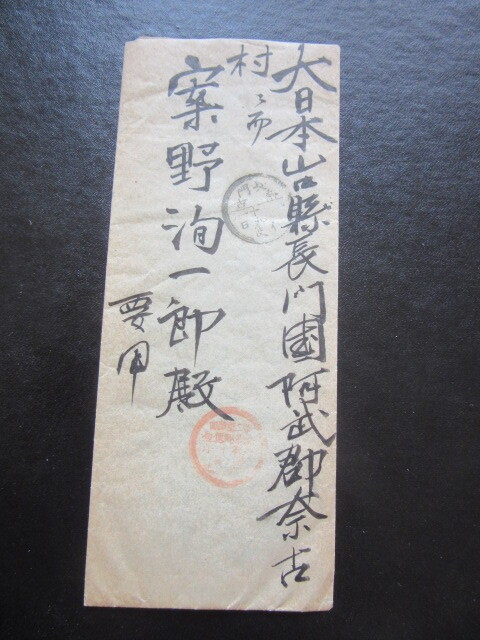 大日本山口縣長門國阿武郡奈古
村ニ而
案野洵一郎殿
要用